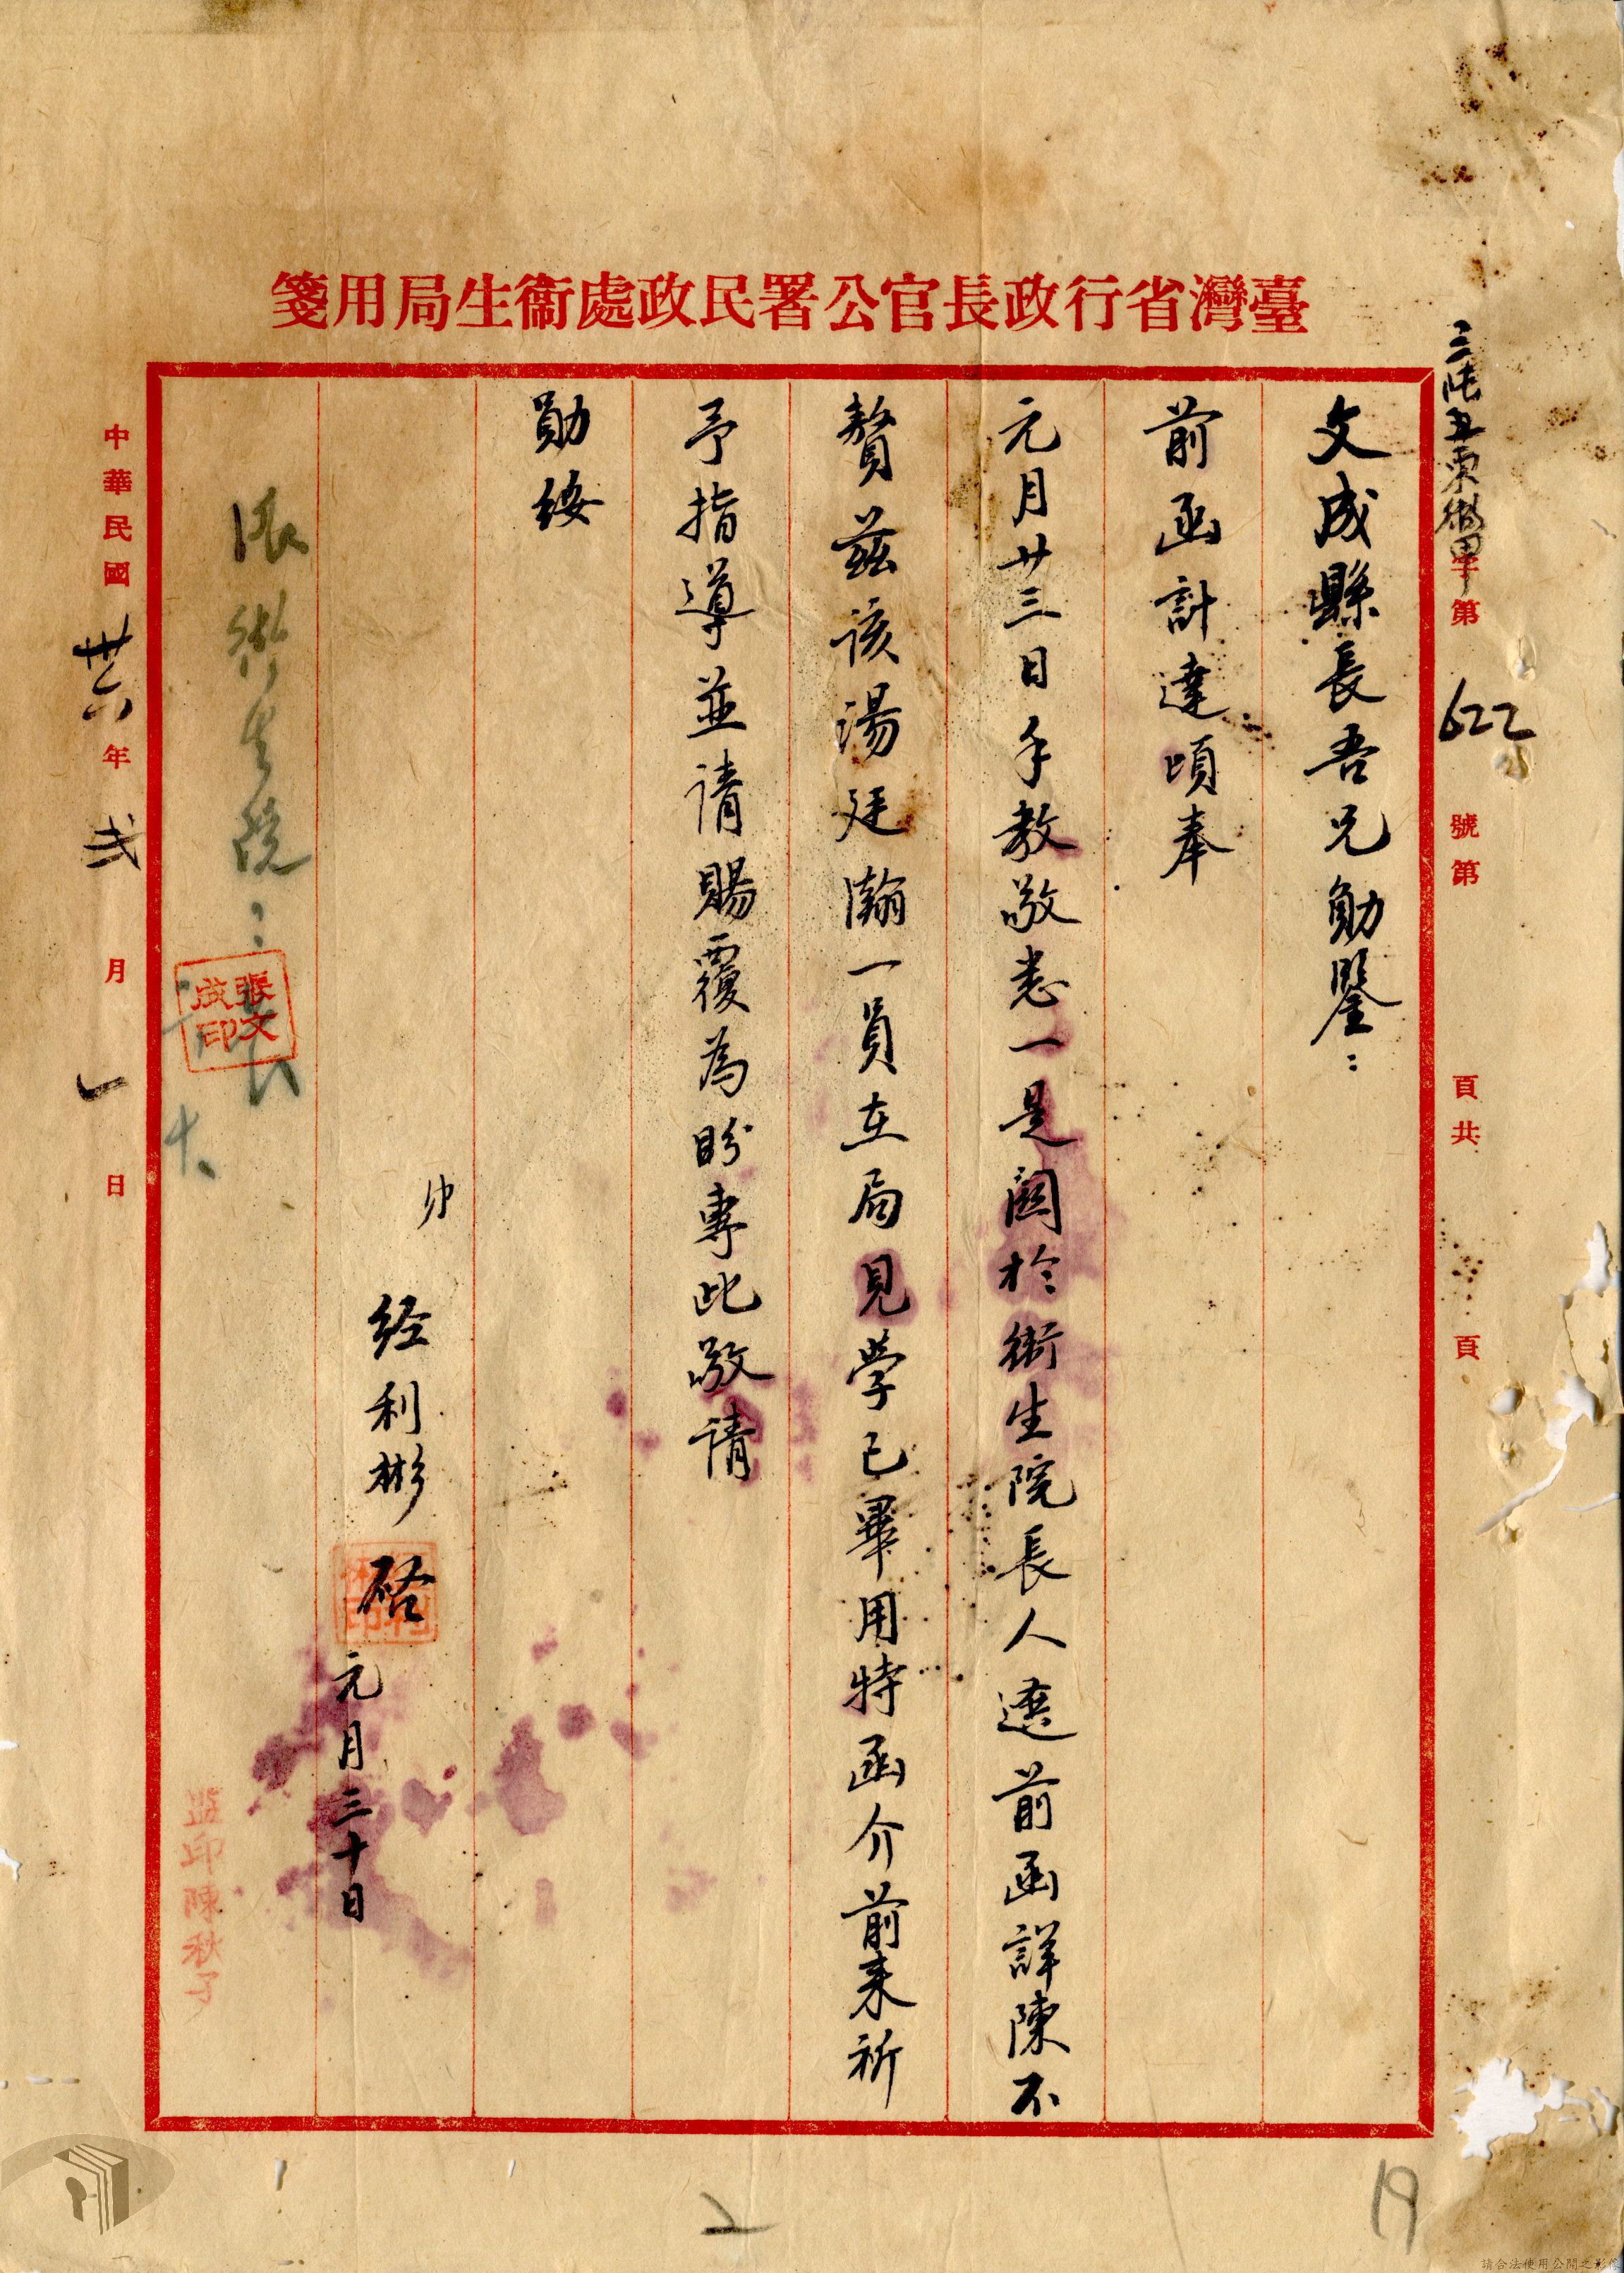 臺灣省行政長官公署民政處衞生局用箋
字第 622 號第 頁共 頁
文成縣長吾兄勛鑒：
前函計達頃奉
元月廿三日手教敬悉一是關於衛生院長人選前函詳陳不
贅茲該湯廷瀚一員在局見學已畢用特函介前來祈
予指導並请賜覆為盼專此敬请
勛绥
弟
经利彬 啓 元月三十日
衛生院：
張文成印
監印陳秋子
中華民國卅六年弍月一日
2
19
請合法使用公開之影像